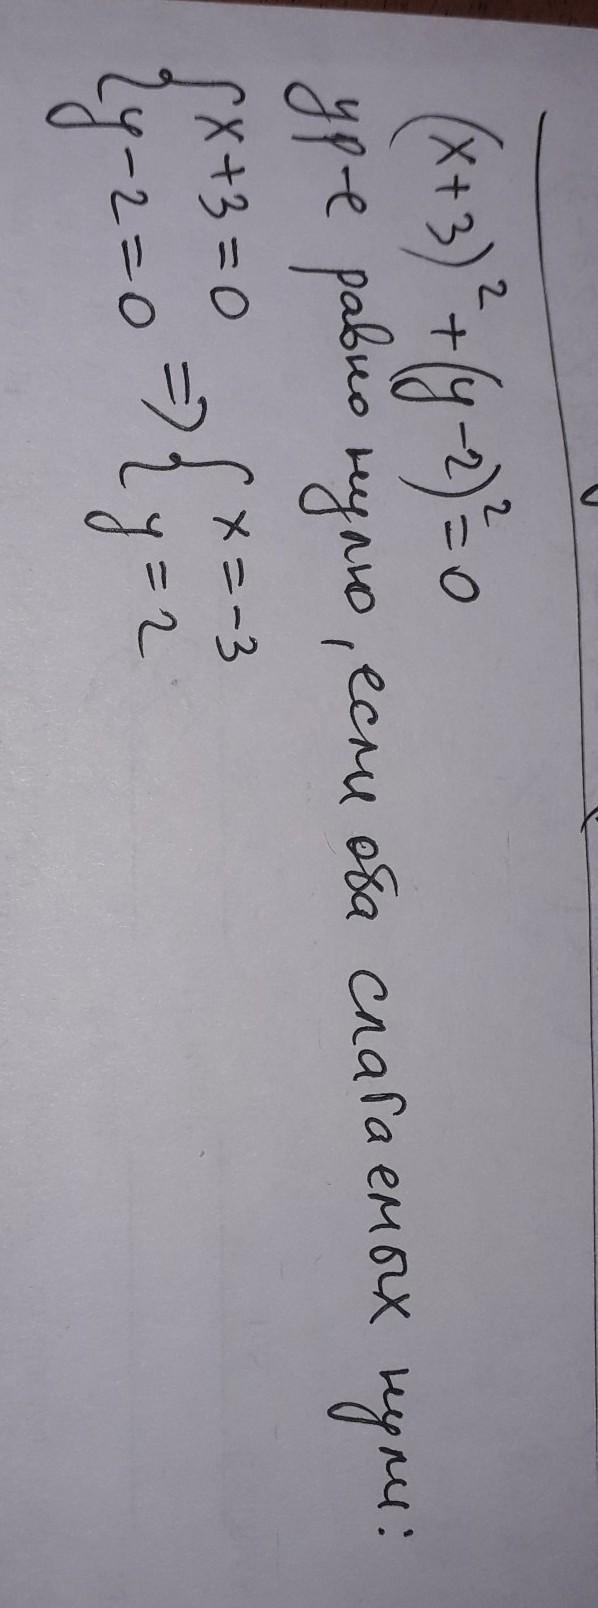 (x+3)² + (y-2)² = 0
ур-е равно нулю, если оба слагаемых нули:
{ x+3=0
{ y-2=0 => { x=-3
{ y=2